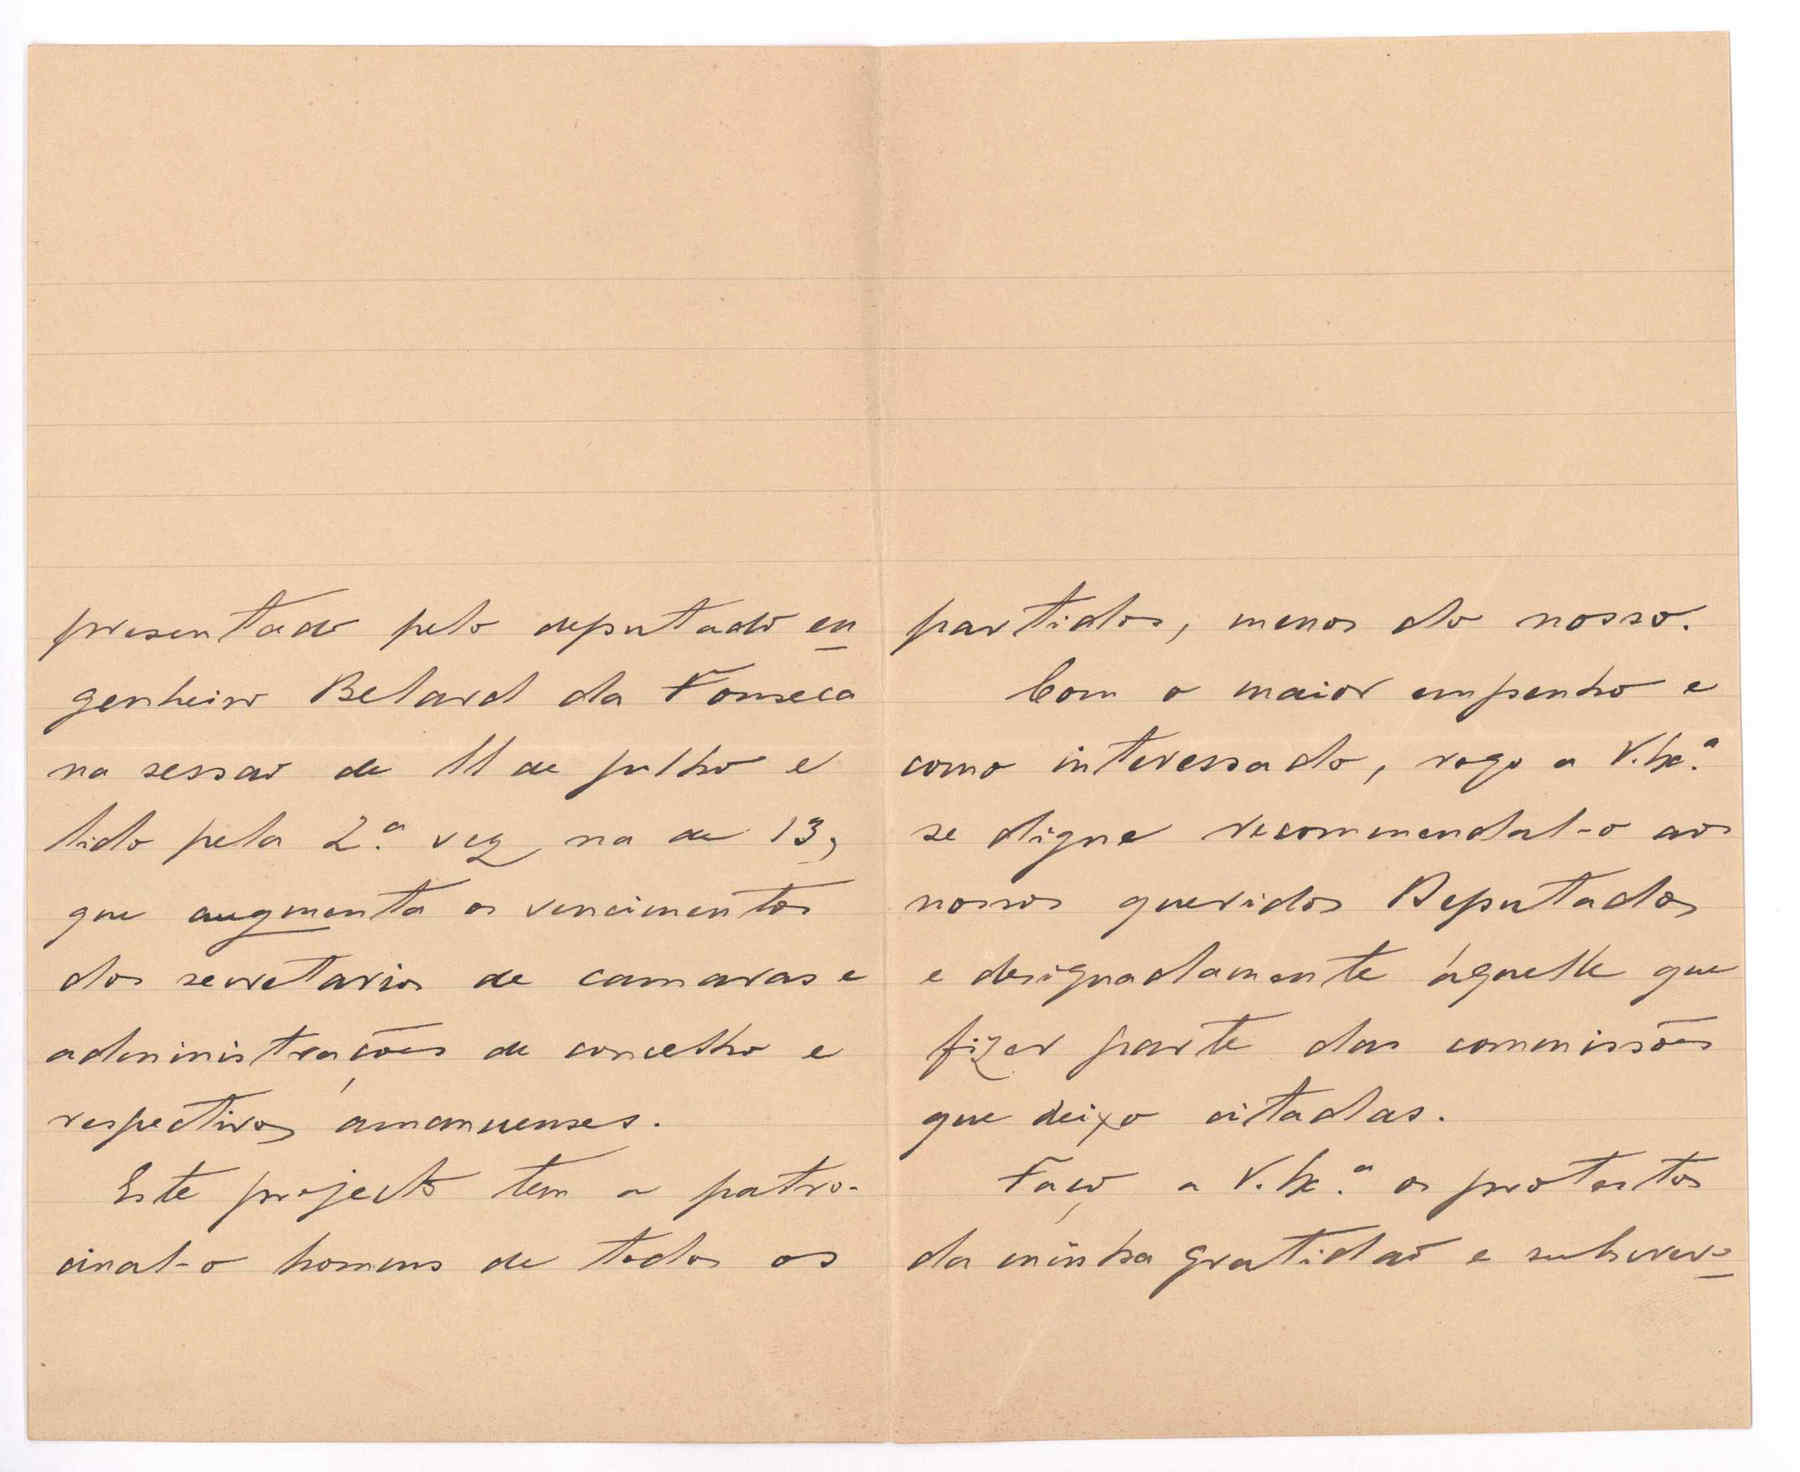 presentado pelo deputado en
genheiro Belard da Fonseca
na sessão de 11 de julho e
lido pela 2.ª vez na de 13,
que augmenta os vencimentos
dos secretarios de camaras e
administrações de concelho e
respectivos amanuenses.
Este projecto tem a patro-
cinal-o homens de todos os
partidos, menos do nosso.
Com o maior empenho e
como interessado, rogo a V. Ex.ª
se digne recommendal-o aos
nossos queridos Deputados
e designadamente áquelle que
fizer parte das commissões
que deixo citadas.
Faço a V. Ex.ª os protestos
da minha gratidão e subscrevo-